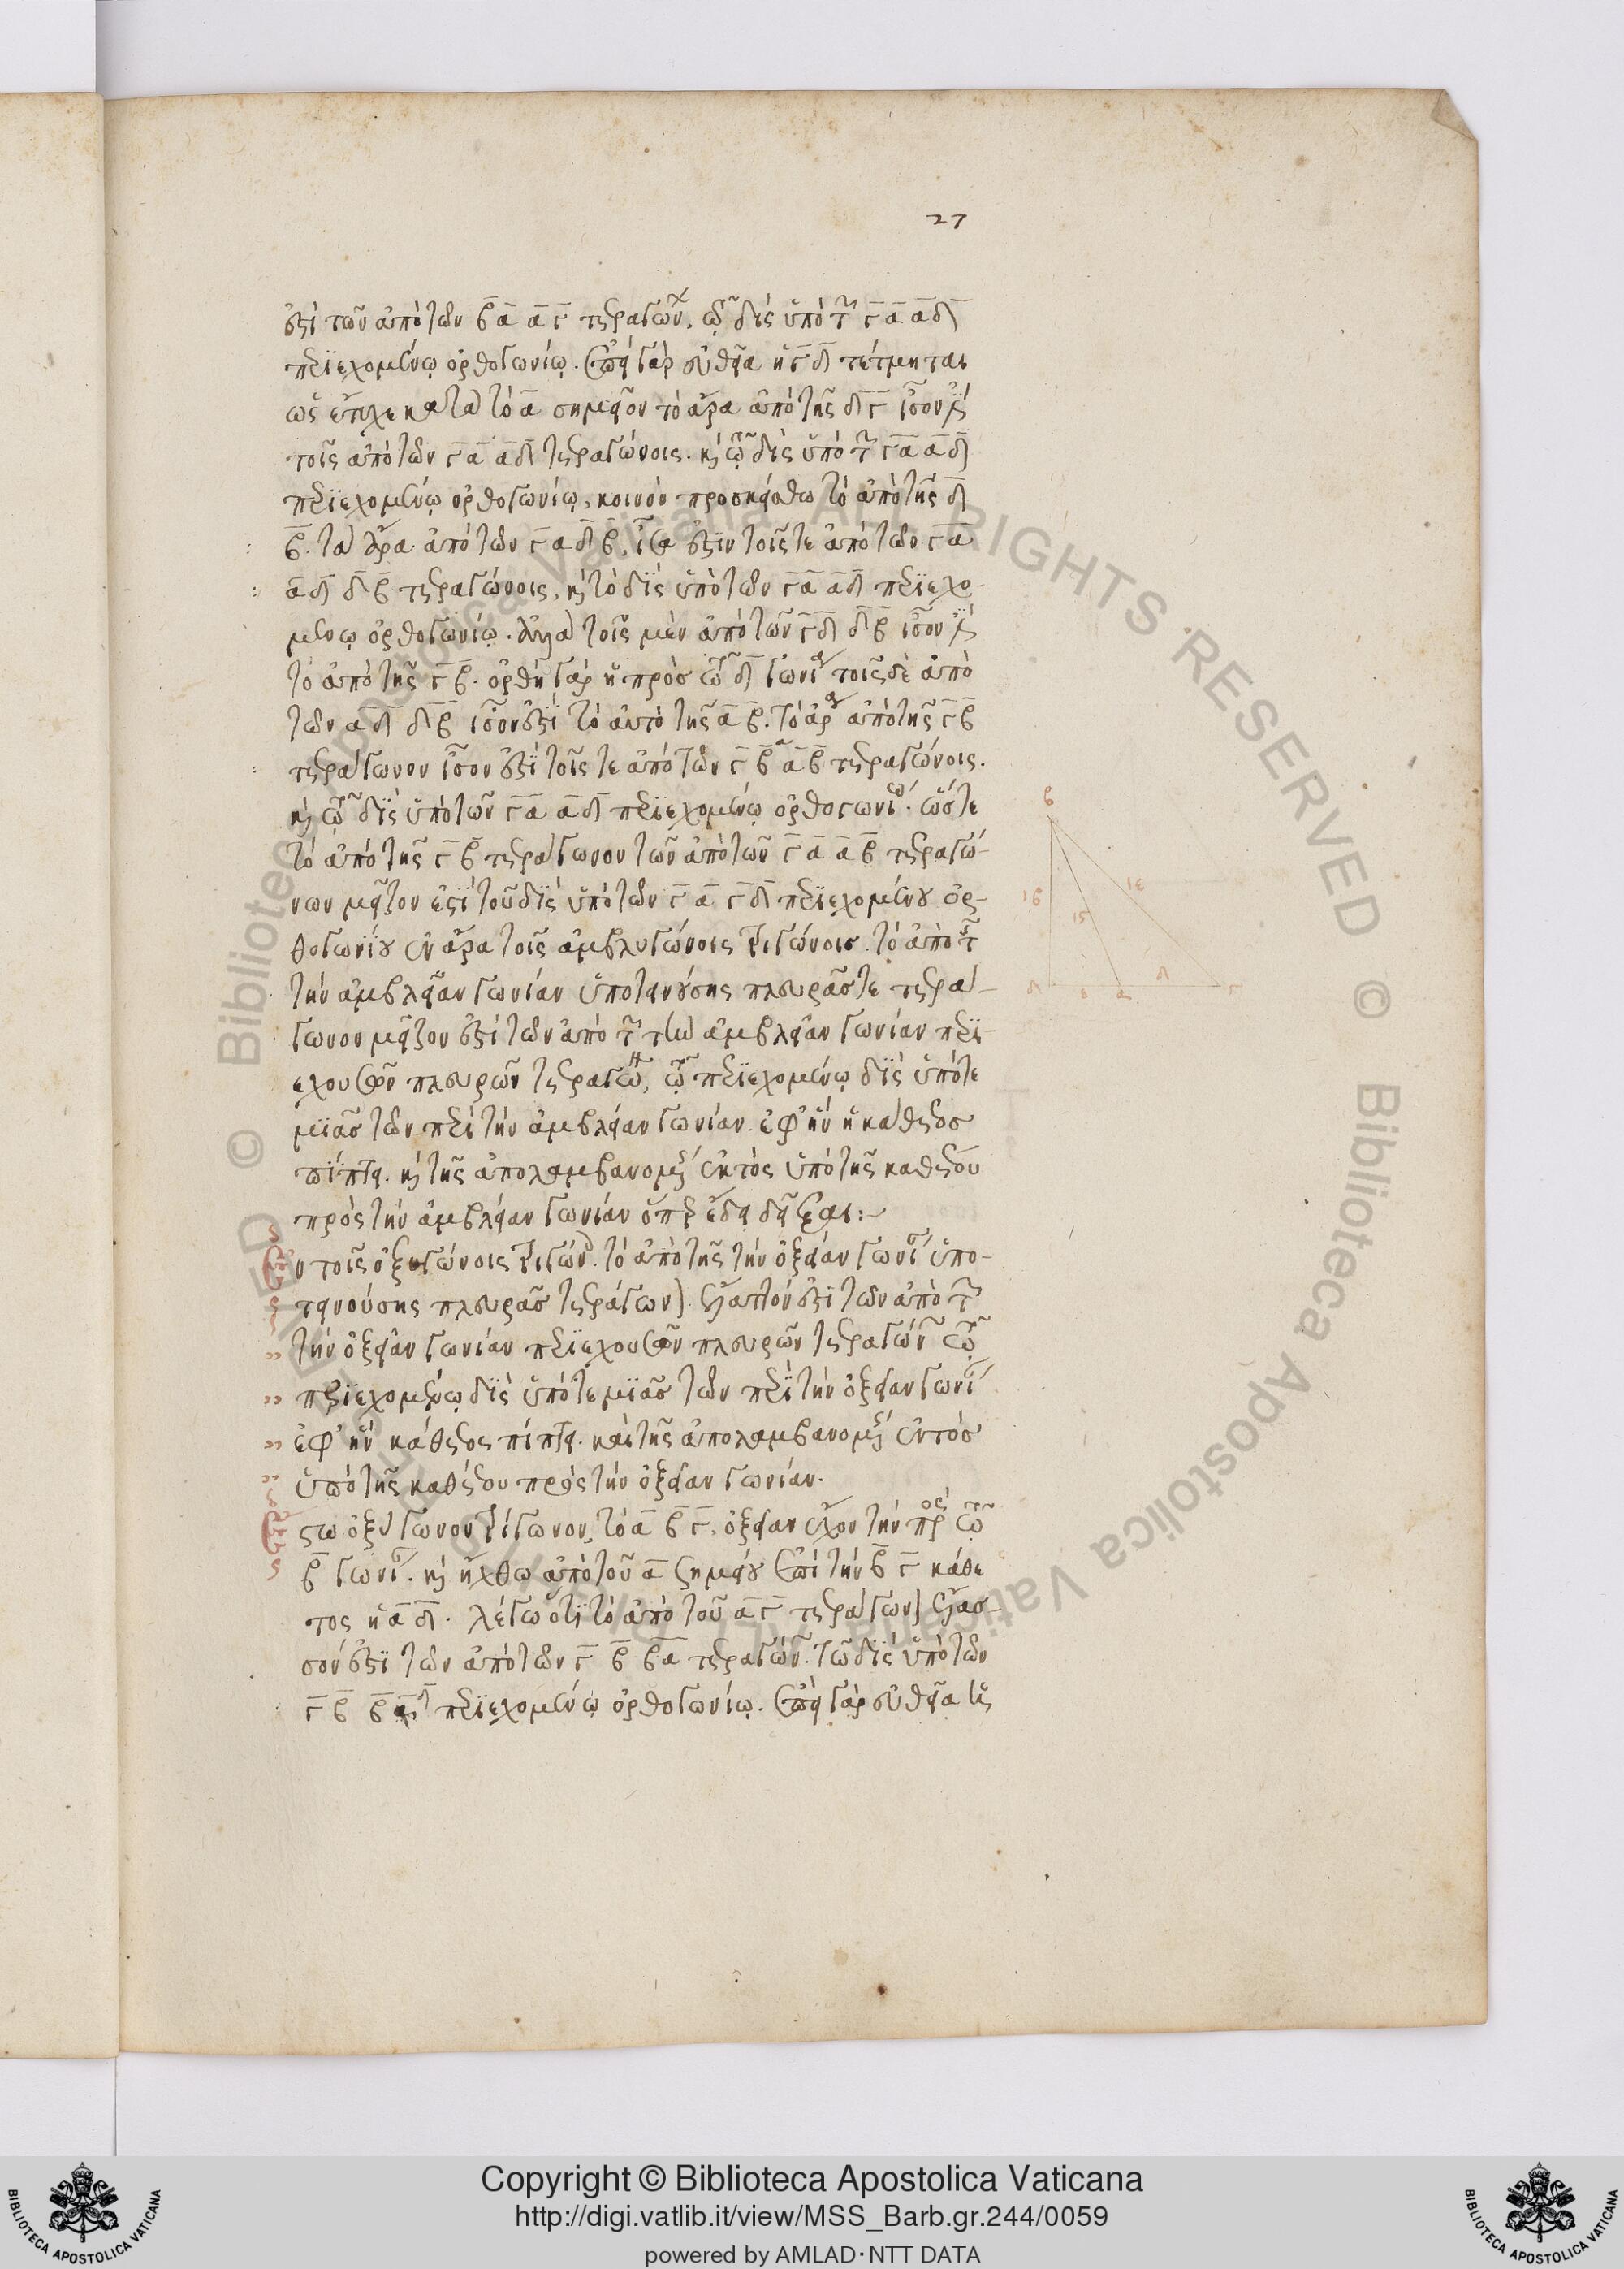 27
ἐστὶ τῶν ἀπὸ τῶν β̅α̅ α̅γ̅ τετραγών, τῷ δὶς ὑπὸ τῶν γ̅α̅ α̅δ̅
περιεχομένῳ ὀρθογωνίῳ. ἐπεὶ γὰρ εὐθεῖα ἡ γ̅δ̅ τέτμηται
ὡς ἔτυχε κατὰ τὸ α̅ σημεῖον τὸ ἄρα ἀπὸ τῆς δ̅γ̅ ἴσον ἐστὶ
τοῖς ἀπὸ τῶν γ̅α̅ α̅δ̅ τετραγώνοις. καὶ τῷ δὶς ὑπὸ τῶν γ̅α̅ α̅δ̅
περιεχομένῳ ὀρθογωνίῳ, κοινὸν προσκείσθω τὸ ἀπὸ τῆς δ̅
β̅. τὰ ἄρα ἀπὸ τῶν γ̅α̅ δ̅β̅, ἴσα ἐστὶν τοῖς τε ἀπὸ τῶν γ̅α̅
α̅δ̅ δ̅β̅ τετραγώνοις, καὶ τὸ δὶς ὑπὸ τῶν γ̅α̅ α̅δ̅ περιεχο-
μένῳ ὀρθογωνίῳ. ἀλλὰ τοῖς μὲν ἀπὸ τῶν γ̅δ̅ δ̅β̅ ἴσον ἐστὶ
τὸ ἀπὸ τῆς γ̅β̅. ὀρθὴ γὰρ ἡ πρὸς τῷ δ̅ γωνία τοῖς δὲ ἀπὸ
τῶν α̅δ̅ δ̅β̅ ἴσον ἐστὶ τὸ ἀπὸ τῆς α̅β̅. τὸ ἄρα ἀπὸ τῆς γ̅β̅
τετράγωνον ἴσον ἐστὶ τοῖς τε ἀπὸ τῶν γ̅β̅ α̅β̅ τετραγώνοις.
καὶ τῷ δὶς ὑπὸ τῶν γ̅α̅ α̅δ̅ περιεχομένῳ ὀρθογωνίῳ. ὥστε
τὸ ἀπὸ τῆς γ̅β̅ τετράγωνον τῶν ἀπὸ τῶν γ̅α̅ α̅β̅ τετραγώ-
νων μεῖζον ἐστὶ τοῦ δὶς ὑπὸ τῶν γ̅α̅ γ̅δ̅ περιεχομένου ὀρ-
θογωνίου ἐν ἄρα τοῖς ἀμβλυγώνοις τριγώνοις. τὸ ἀπὸ τῆς
τὴν ἀμβλεῖαν γωνίαν ὑποτεινούσης πλευρᾶς τε τετρά-
γωνον μεῖζον ἐστὶ τῶν ἀπὸ τῶν τὴν ἀμβλεῖαν γωνίαν περι-
εχουσῶν πλευρῶν τετραγών, τῷ περιεχομένῳ δὶς ὑπό τε
μιᾶς τῶν περὶ τὴν ἀμβλείαν γωνίαν. ἐφ' ἣν ἡ κάθετος
πίπτει. καὶ τῆς ἀπολαμβανομένης ἐκτὸς ὑπὸ τῆς καθέτου
πρὸς τὴν ἀμβλείαν γωνίαν ὅπερ ἔδει δεῖξαι:
Ἐν τοῖς ὀξυγώνοις τριγών. τὸ ἀπὸ τῆς τὴν ὀξεῖαν γωνίαν ὑπο-
τεινούσης πλευρᾶς τετράγωνον. ἔλαττόν ἐστὶ τῶν ἀπὸ τῶν
τὴν ὀξεῖαν γωνίαν περιεχουσῶν πλευρῶν τετραγών τῷ
περιεχομένῳ δὶς ὑπό τε μιᾶς τῶν περὶ τὴν ὀξεῖαν γωνίαν
ἐφ' ἣν κάθετος πίπτει. καὶ τῆς ἀπολαμβανομένης ἐντὸς
ὑπὸ τῆς καθέτου πρὸς τὴν ὀξεῖαν γωνίαν.
Ἔστω ὀξυγώνον τρίγωνον, τὸ α̅β̅γ̅. ὀξεῖαν ἔχον τὴν πρὸς τῷ
β̅ γωνίαν. καὶ ἤχθω ἀπὸ τοῦ α̅ σημείου ἐπὶ τὴν β̅γ̅ κάθε
τος ἡ α̅δ̅. λέγω ὅτι τὸ ἀπὸ τοῦ α̅γ̅ τετράγωνον ἔλασ
σόν ἐστι τῶν ἀπὸ τῶν γ̅β̅ β̅α̅ τετραγών. τῶ δὶς ὑπὸ τῶν
γ̅β̅ β̅δ̅ περιεχομένῳ ὀρθογωνίῳ. ἐπεὶ γὰρ εὐθεῖα ἡ
β
ιβ
ιε
Copyright © Biblioteca Apostolica Vaticana
http://digi.vatlib.it/view/MSS_Barb.gr.244/0059
powered by AMLAD·NTT DATA
BIBLIOTECA APOSTOLICA VATICANA
BIBLIOTECA APOSTOLICA VATICANA
© Biblioteca Apostolica Vaticana ALL RIGHTS RESERVED
© Biblioteca Apostolica Vaticana ALL RIGHTS RESERVED